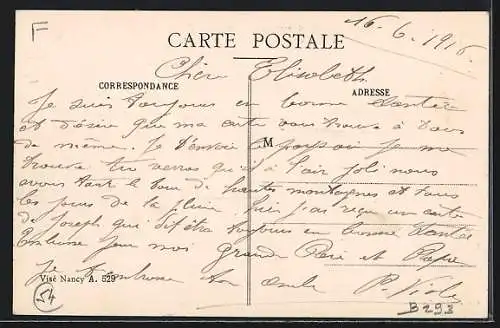 F
16.6.1916
CARTE POSTALE
Chère Elisabeth
CORRESPONDANCE
ADRESSE
Je suis toujours en bonne santée
et désire que ma carte vous trouve à tous
de même. Je t'envoie
M
où je me
trouve tu verras qu'il à l'air joli nous
avons tout le tour de hautes montagnes et tous
les jours de la pluie. Hier j'ai reçu une carte
de Joseph qui dit être toujours en bonne santée
Embrasse pour moi Grand Père et Papa
Je t'embrasse ton
Visé Nancy A. 529
54
B298